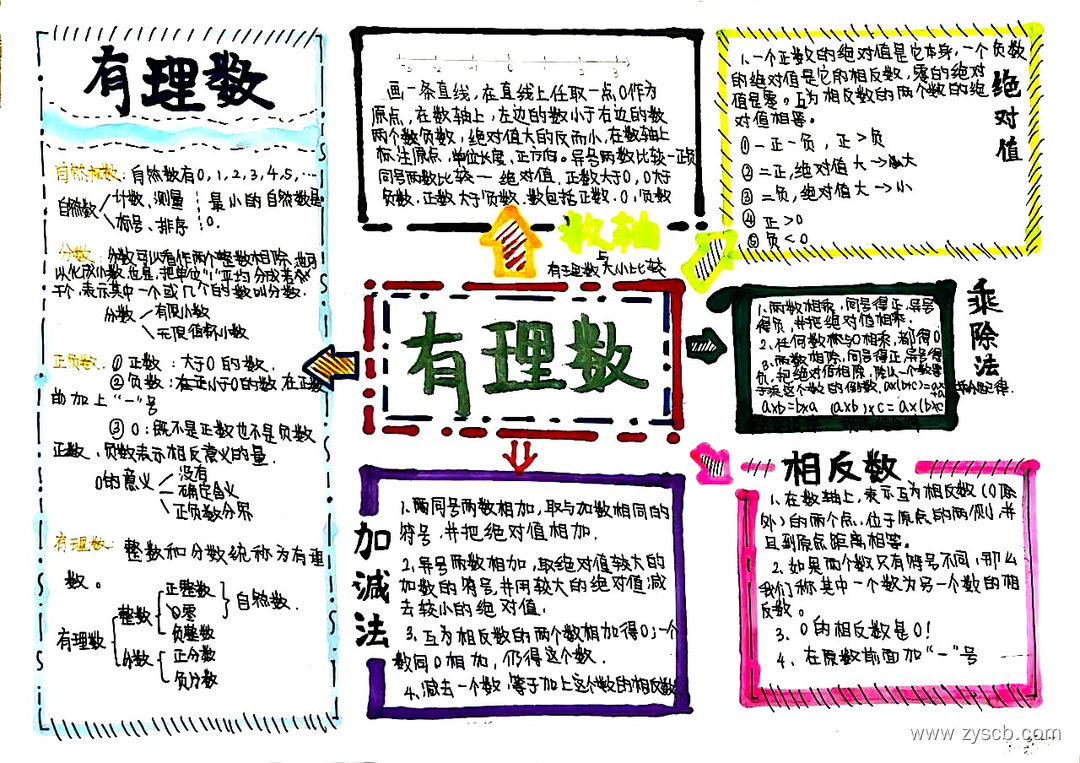 有理数
自然数：自然数有0,1,2,3,4,5,…
自然数 计数、测量
标号、排序
最小的自然数是
0.
分数：分数可以看作两个整数相除,也可
以化成小数,也是,把单位"1"平均分成若
干个,表示其中一个或几个的数叫分数.
分数 有限小数
无限循环小数
正负数：① 正数：大于0的数.
② 负数：在正小于0的数 在正数
的加上"－"号
③ 0：既不是正数也不是负数
正数、负数表示相反意义的量.
0的意义 没有
确定含义
正负数分界
有理数：整数和分数统称为有理
数。
有理数 整数 正整数
0零
负整数
自然数.
分数 正分数
负分数
画一条直线,在直线上任取一点0作为
原点,在数轴上,左边的数小于右边的数
两个数负数,绝对值大的反而小,在数轴上
标注原点,单位长度、正方向。异号两数比较一正负
同号两数比较一 绝对值.正数大于0,0大于
负数.正数大于负数.数包括正数.0.负数
数轴
与
有理数大小比较
1.一个正数的绝对值是它本身,一个负数
的绝对值是它的相反数,零的绝对
值是零。互为相反数的两个数的绝
对值相等。
① 一正一负,正>负
② 二正,绝对值大→大
③ 二负,绝对值大→小
④ 正>0
⑤ 负<0
绝对值
有理数
1.两数相乘,同号得正.异号
得负,并把绝对值相乘.
2.任何数乘与0相乘,都得0
3.两数相除,同号得正.异号得
负,把绝对值相除,除以一个数等
于乘这个数的倒数.a×(b+c)=a×
axb=bxa (axb)xc=ax(bxc
乘除法
加减法
1.两同号两数相加,取与加数相同的
符号,并把绝对值相加.
2.异号两数相加,取绝对值较大的
加数的符号,并用较大的绝对值减
去较小的绝对值.
3.互为相反数的两个数相加得0;一个
数同0相加,仍得这个数.
4.减去一个数,等于加上这个数的相反数
相反数
1.在数轴上,表示互为相反数(0除
外)的两个点,位于原点的两侧,并
且到原点距离相等。
2.如果两个数只有符号不同,那么
我们称其中一个数为另一个数的相
反数。
3、0的相反数是0!
4、在原数前面加"－"号
www.zyscb.com